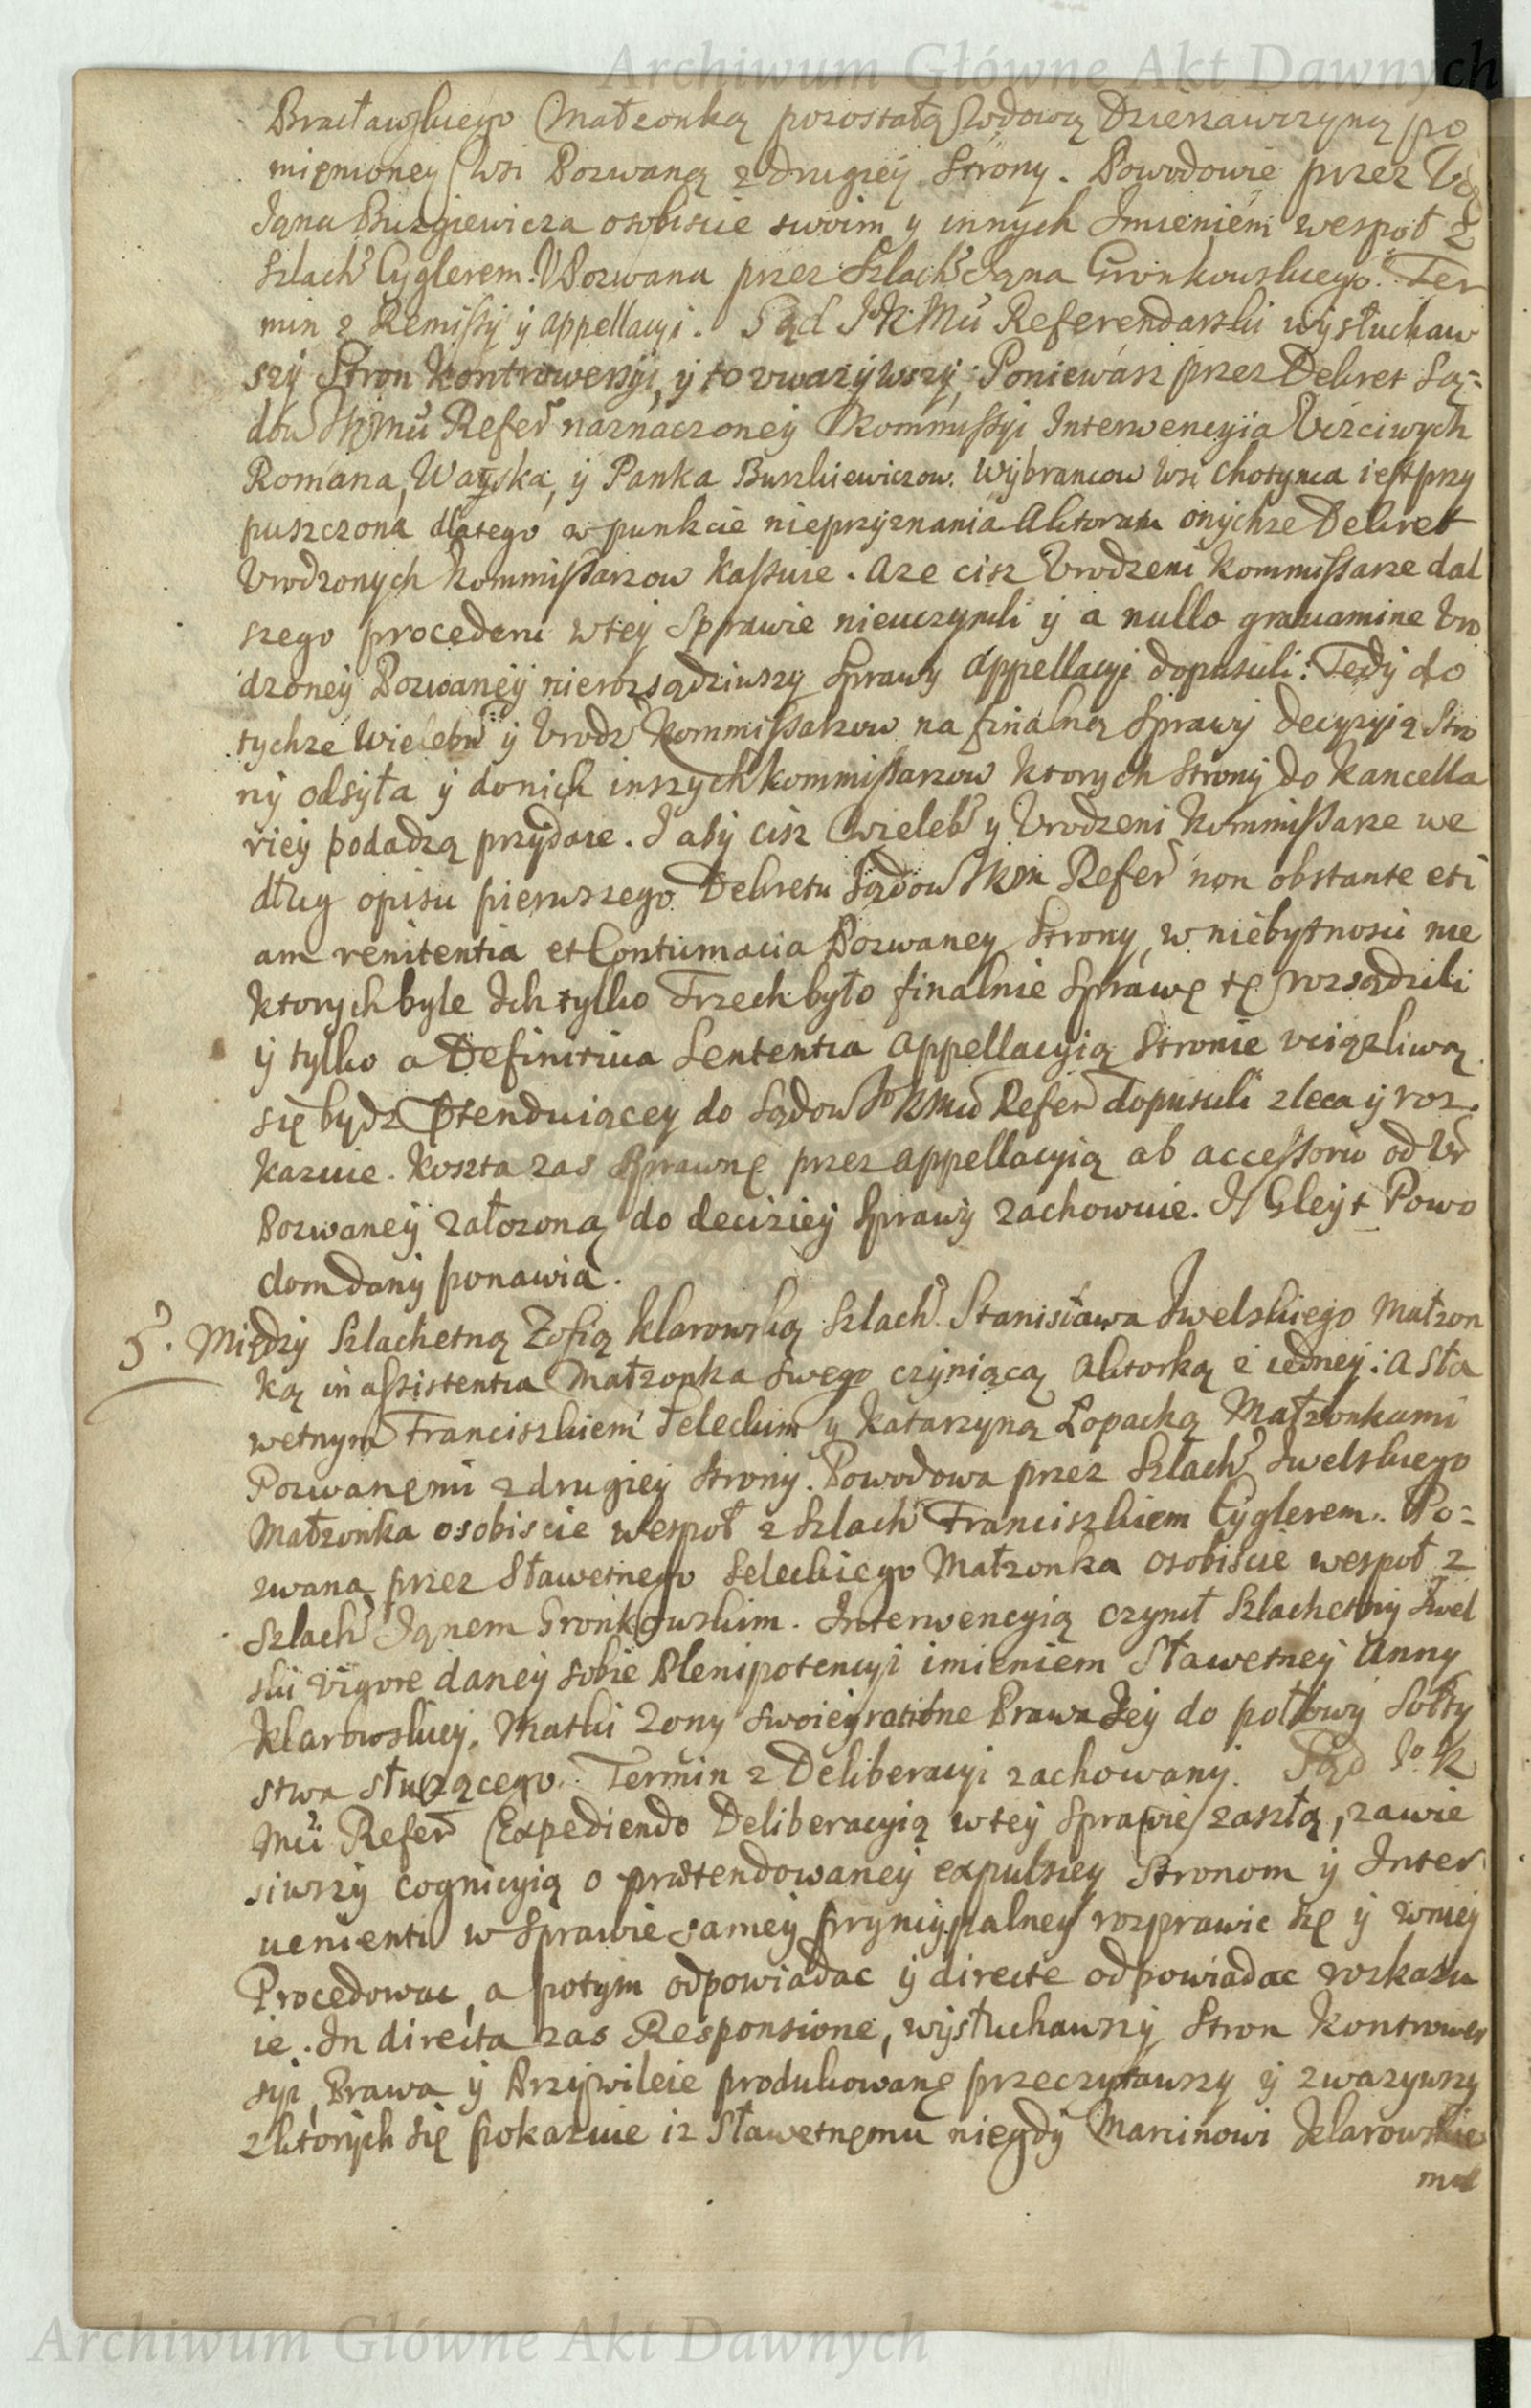 Archiwum Główne Akt Dawnych
Bracławskiego Małżonką pozostałą Wdową Dzierzawczyną po
mięnioney Wsi Pozwaną z drugiey Strony. Powodowie przez
Jąna Buzgiewicza osobiscie swoim y innych Jmieniem wespoł z
Szlach Cyglerem. Pozwana przez Szlach Jąna Gronkowskiego. Ter
min z Remissÿ ÿ appellacyi. Sąd JKMu Referendarski wysłuchaw
szÿ Stron Kontrowersÿi, ÿ to vwazÿwszÿ, Poniewasz przez Dekret Są=
dow JKMu Refer naznaczoneÿ Kommissÿi Interwencyia Vczciwych
Romana, Wayska, ÿ Panka Buszkiewiczow. Wÿbrancow Wsi Chotynca iest przy
puszczona dlatego w punkcie nieprzÿznania Aktoratu onÿchze Dekret
Vrodzonych Kommissarzow Kassuie. A ze cisz Vrodzeni Kommissarze dal
szego procederu wteÿ Sprawie nieuczynili ÿ a nullo grauamine Vro
dzoneÿ Pozwaneÿ nierozsądziwszy Sprawy Appellacyi dopuscili: Tedÿ do
tychze Wielebn ÿ Vrodz Kommissarzow na finalną Sprawÿ decyzyią Stro
nÿ odsÿła ÿ do nich inszych Kommissarzow Ktorych Stronÿ do Kancella
rieÿ podadzą przÿdaie. I abÿ cisz Wieleb y Vrodzeni Kommissarze we
dług opisu pierwszego Dekretu Sądow JKM Refer non obstante eti
am renitentia et Contumacia Pozwaney Strony, w niebytnosci nie
Ktorych byle Jch tylko Trzech było finalnie Sprawę tę rozsądzili
ÿ tylko a Definitiua Sententia Appellacyią Stronie vciązliwą
się bydz Ptenduiącey do Sądow JoKMu Refer dopuscili zleca ÿ roz
Kazuie. Koszta zas Sprawnę przez appellacyią ab accessorio od Vr
Pozwaneÿ załozoną do decizieÿ Sprawÿ zachowuie. Gleÿt Powo
dom danÿ ponawia.
5. Międzÿ Szlachetną Zofią Klarowską Szlach Stanisława Jwelskiego Małzon
ką in assistentia Małzonka swego czÿniącą Aktorką z iedneÿ: a Sła
wetnym Franciszkiem Seleckim y Katarzyną Lopacką Małzonkami
Pozwanemi z drugiey Stronÿ. Powodowa przez Szlach Jwelskiego
Małzonka osobiscie wespoł z Szlach Franciszkiem Cyglerem. Po=
zwana przez Sławetnego Seleckiego Małzonka osobiscie wespoł z
Szlach Jąnem Gronkowskim. Interwencyią czynił Szlachetnÿ Jwel
ski vigore daneÿ sobie Plenipotencyi imieniem Sławetneÿ Anny
Klarowskieÿ, Matki Zony swoieÿ ratione Prawa Jeÿ do połowÿ Sołty
stwa słuzącego. Termin z Deliberacyi zachowanÿ. Sąd Jo K
Mu Refer Expediendo Deliberacyią wteÿ Sprawie zaszłą, zawie
siwszÿ cognicyią o prætendowaneÿ expulsiey Stronom ÿ Inter
uenienti w Sprawie sameÿ pryncypalneÿ rozprawic się ÿ wnieÿ
Procedowac, a potÿm odpowiadac ÿ directe odpowiadac rozkazu
ie. In directa zas Responsione, wÿsłuchawszÿ Stron Kontrower
syi, Prawa ÿ Przÿwileie produkowanę przeczÿtawszy ÿ zwazÿwszy
z ktorÿch się pokazuie iz Sławetnęmu niegdÿ Marcinowi Klarowskie
mu
Archiwum Główne Akt Dawnych